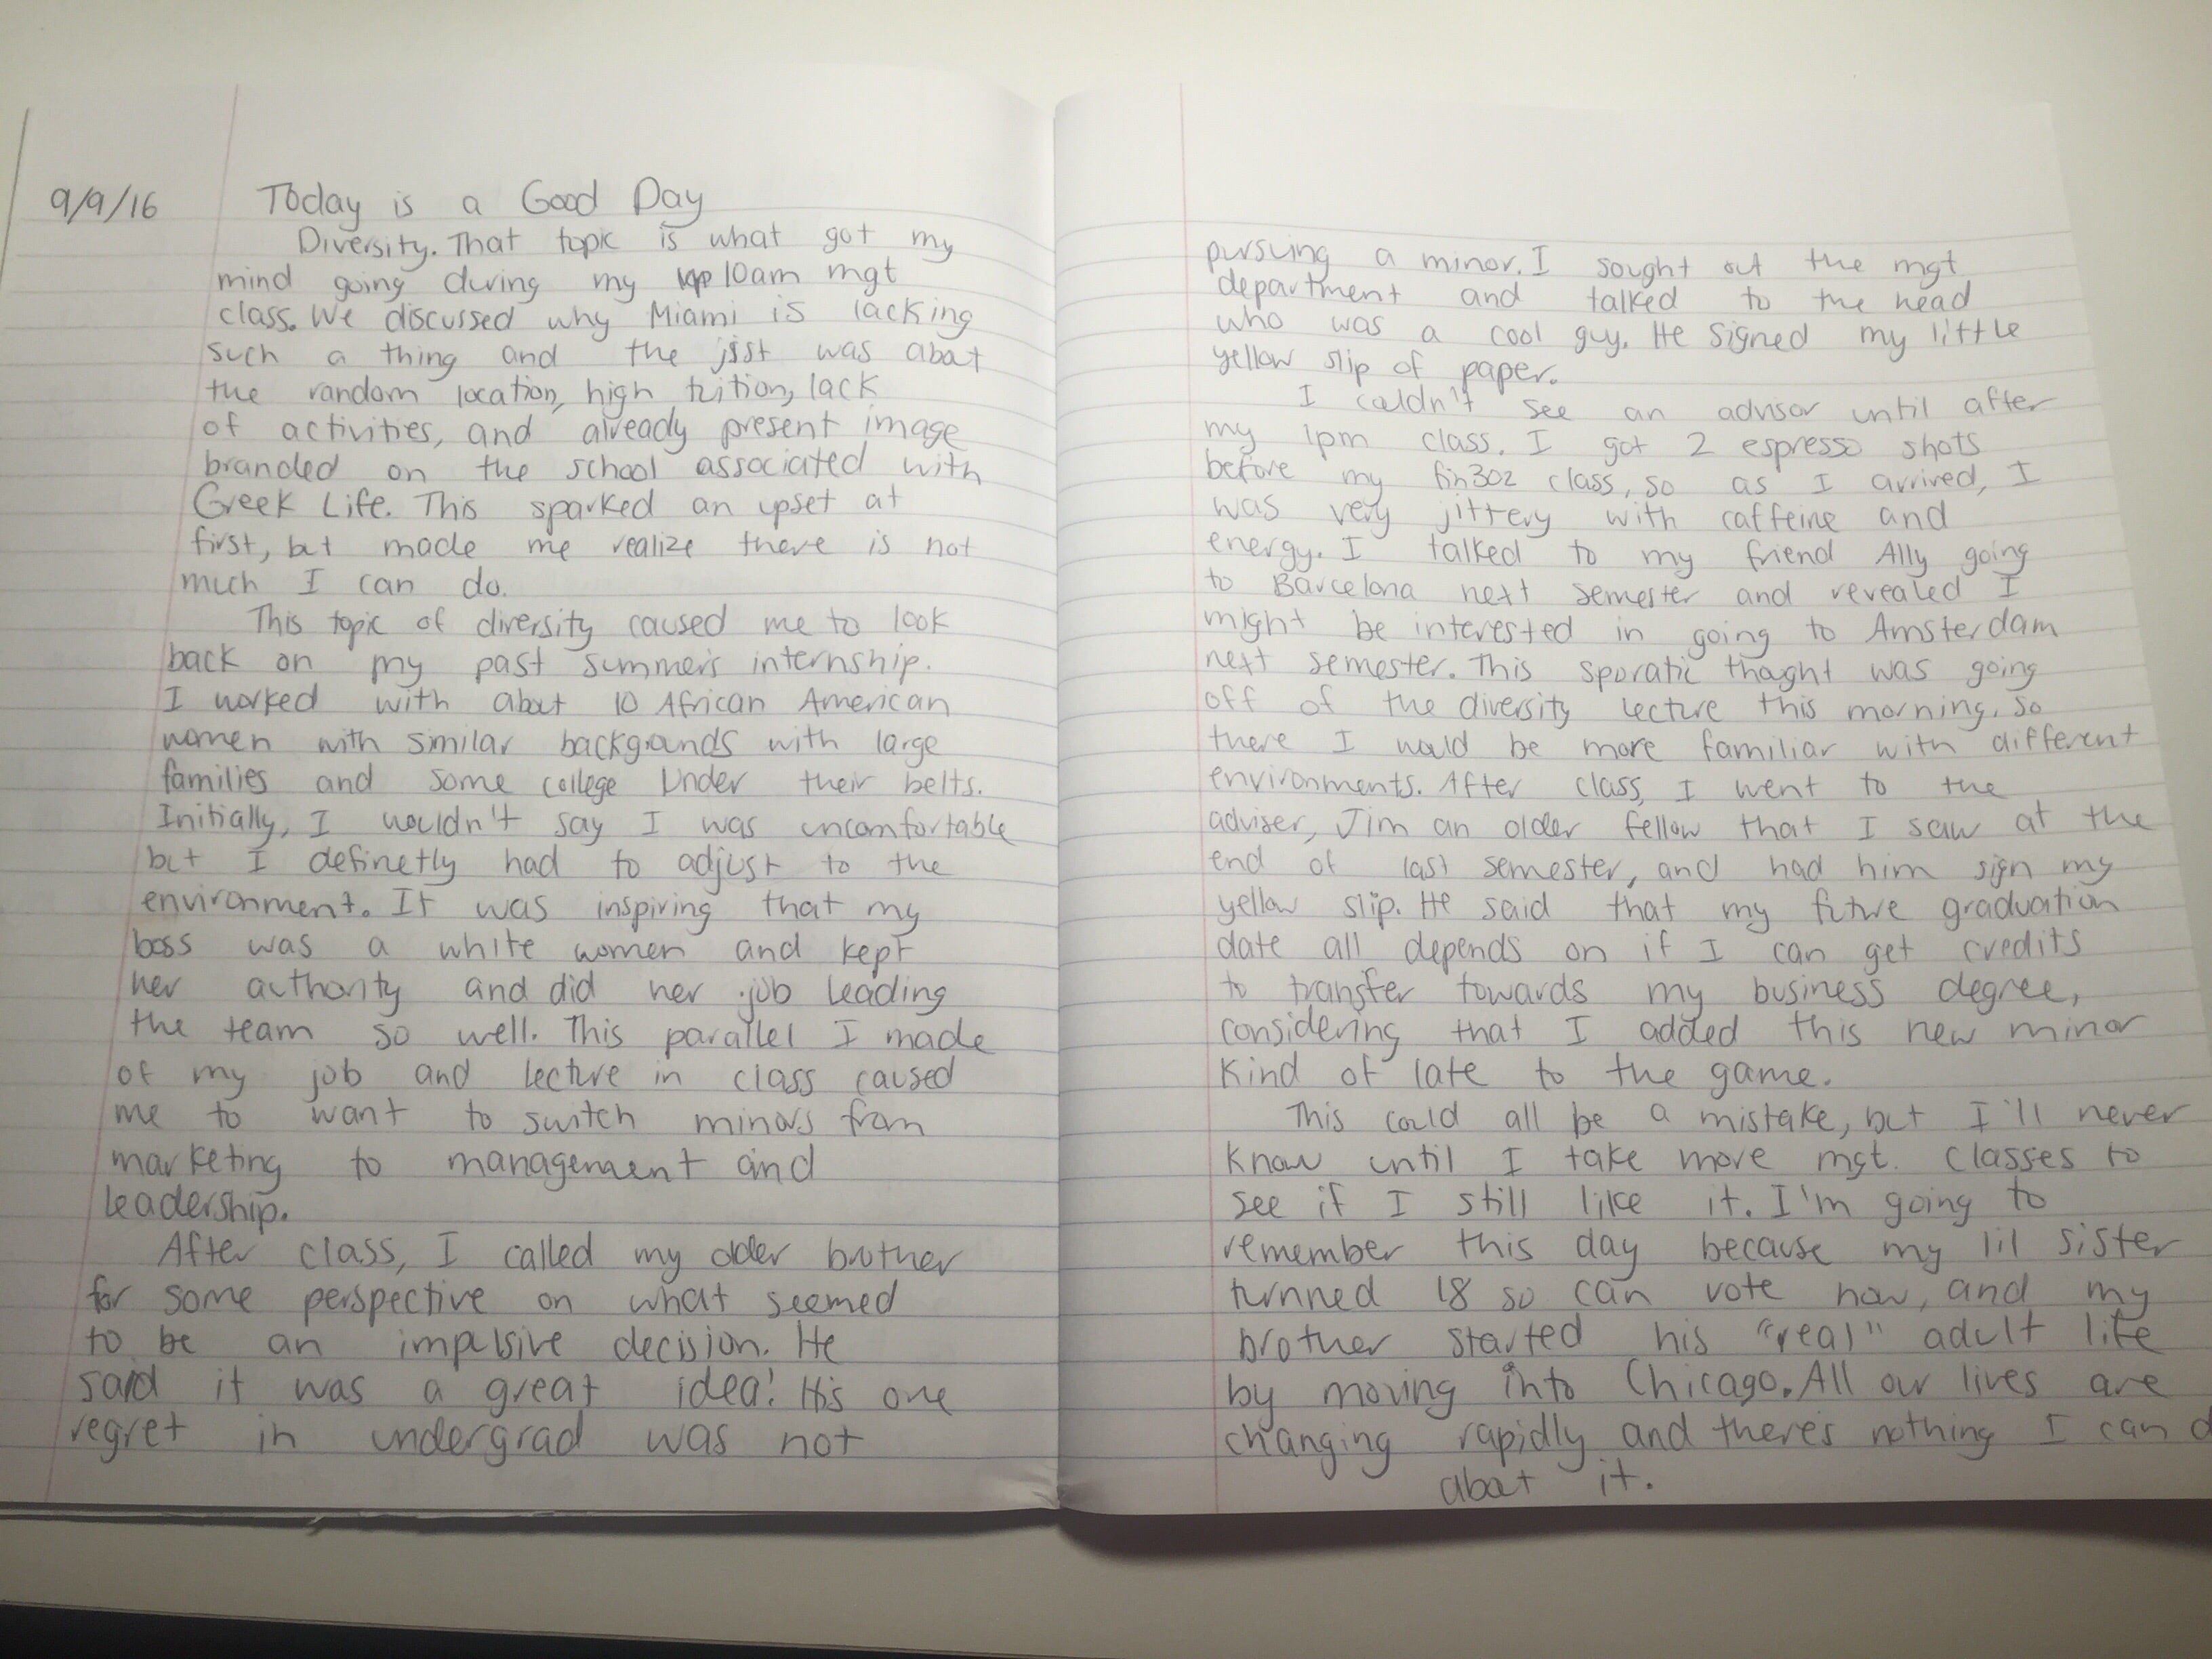 9/9/16 Today is a Good Day
Diversity. That topic is what got my
mind going during my 10am mgt
class. We discussed why Miami is lacking
such a thing and the jist was about
the random location, high tuition, lack
of activities, and already present image
branded on the school associated with
Greek Life. This sparked an upset at
first, but made me realize there is not
much I can do.
This topic of diversity caused me to look
back on my past summer's internship.
I worked with about 10 African American
women with similar backgrounds with large
families and some college under their belts.
Initially, I wouldn't say I was uncomfortable
but I definetly had to adjust to the
environment. It was inspiring that my
boss was a white women and kept
her authority and did her job leading
the team so well. This parallel I made
of my job and lecture in class caused
me to want to switch minors from
marketing to management and
leadership.
After class, I called my older brother
for some perspective on what seemed
to be an impulsive decision. He
said it was a great idea! His one
regret in undergrad was not
pursuing a minor. I sought out the mgt
department and talked to the head
who was a cool guy. He signed my little
yellow slip of paper.
I couldn't see an advisor until after
my 1pm class. I got 2 espresso shots
before my fin302 class, so as I arrived, I
was very jittery with caffeine and
energy. I talked to my friend Ally going
to Barcelona next semester and revealed I
might be interested in going to Amsterdam
next semester. This sporatic thought was going
off of the diversity lecture this morning, so
there I would be more familiar with different
environments. After class, I went to the
adviser, Jim an older fellow that I saw at the
end of last semester, and had him sign my
yellow slip. He said that my future graduation
date all depends on if I can get credits
to transfer towards my business degree,
considering that I added this new minor
kind of late to the game.
This could all be a mistake, but I'll never
know until I take more mgt. classes to
see if I still like it. I'm going to
remember this day because my lil sister
turnned 18 so can vote now, and my
brother started his "real" adult life
by moving into Chicago. All our lives are
changing rapidly and there's nothing I can
about it.